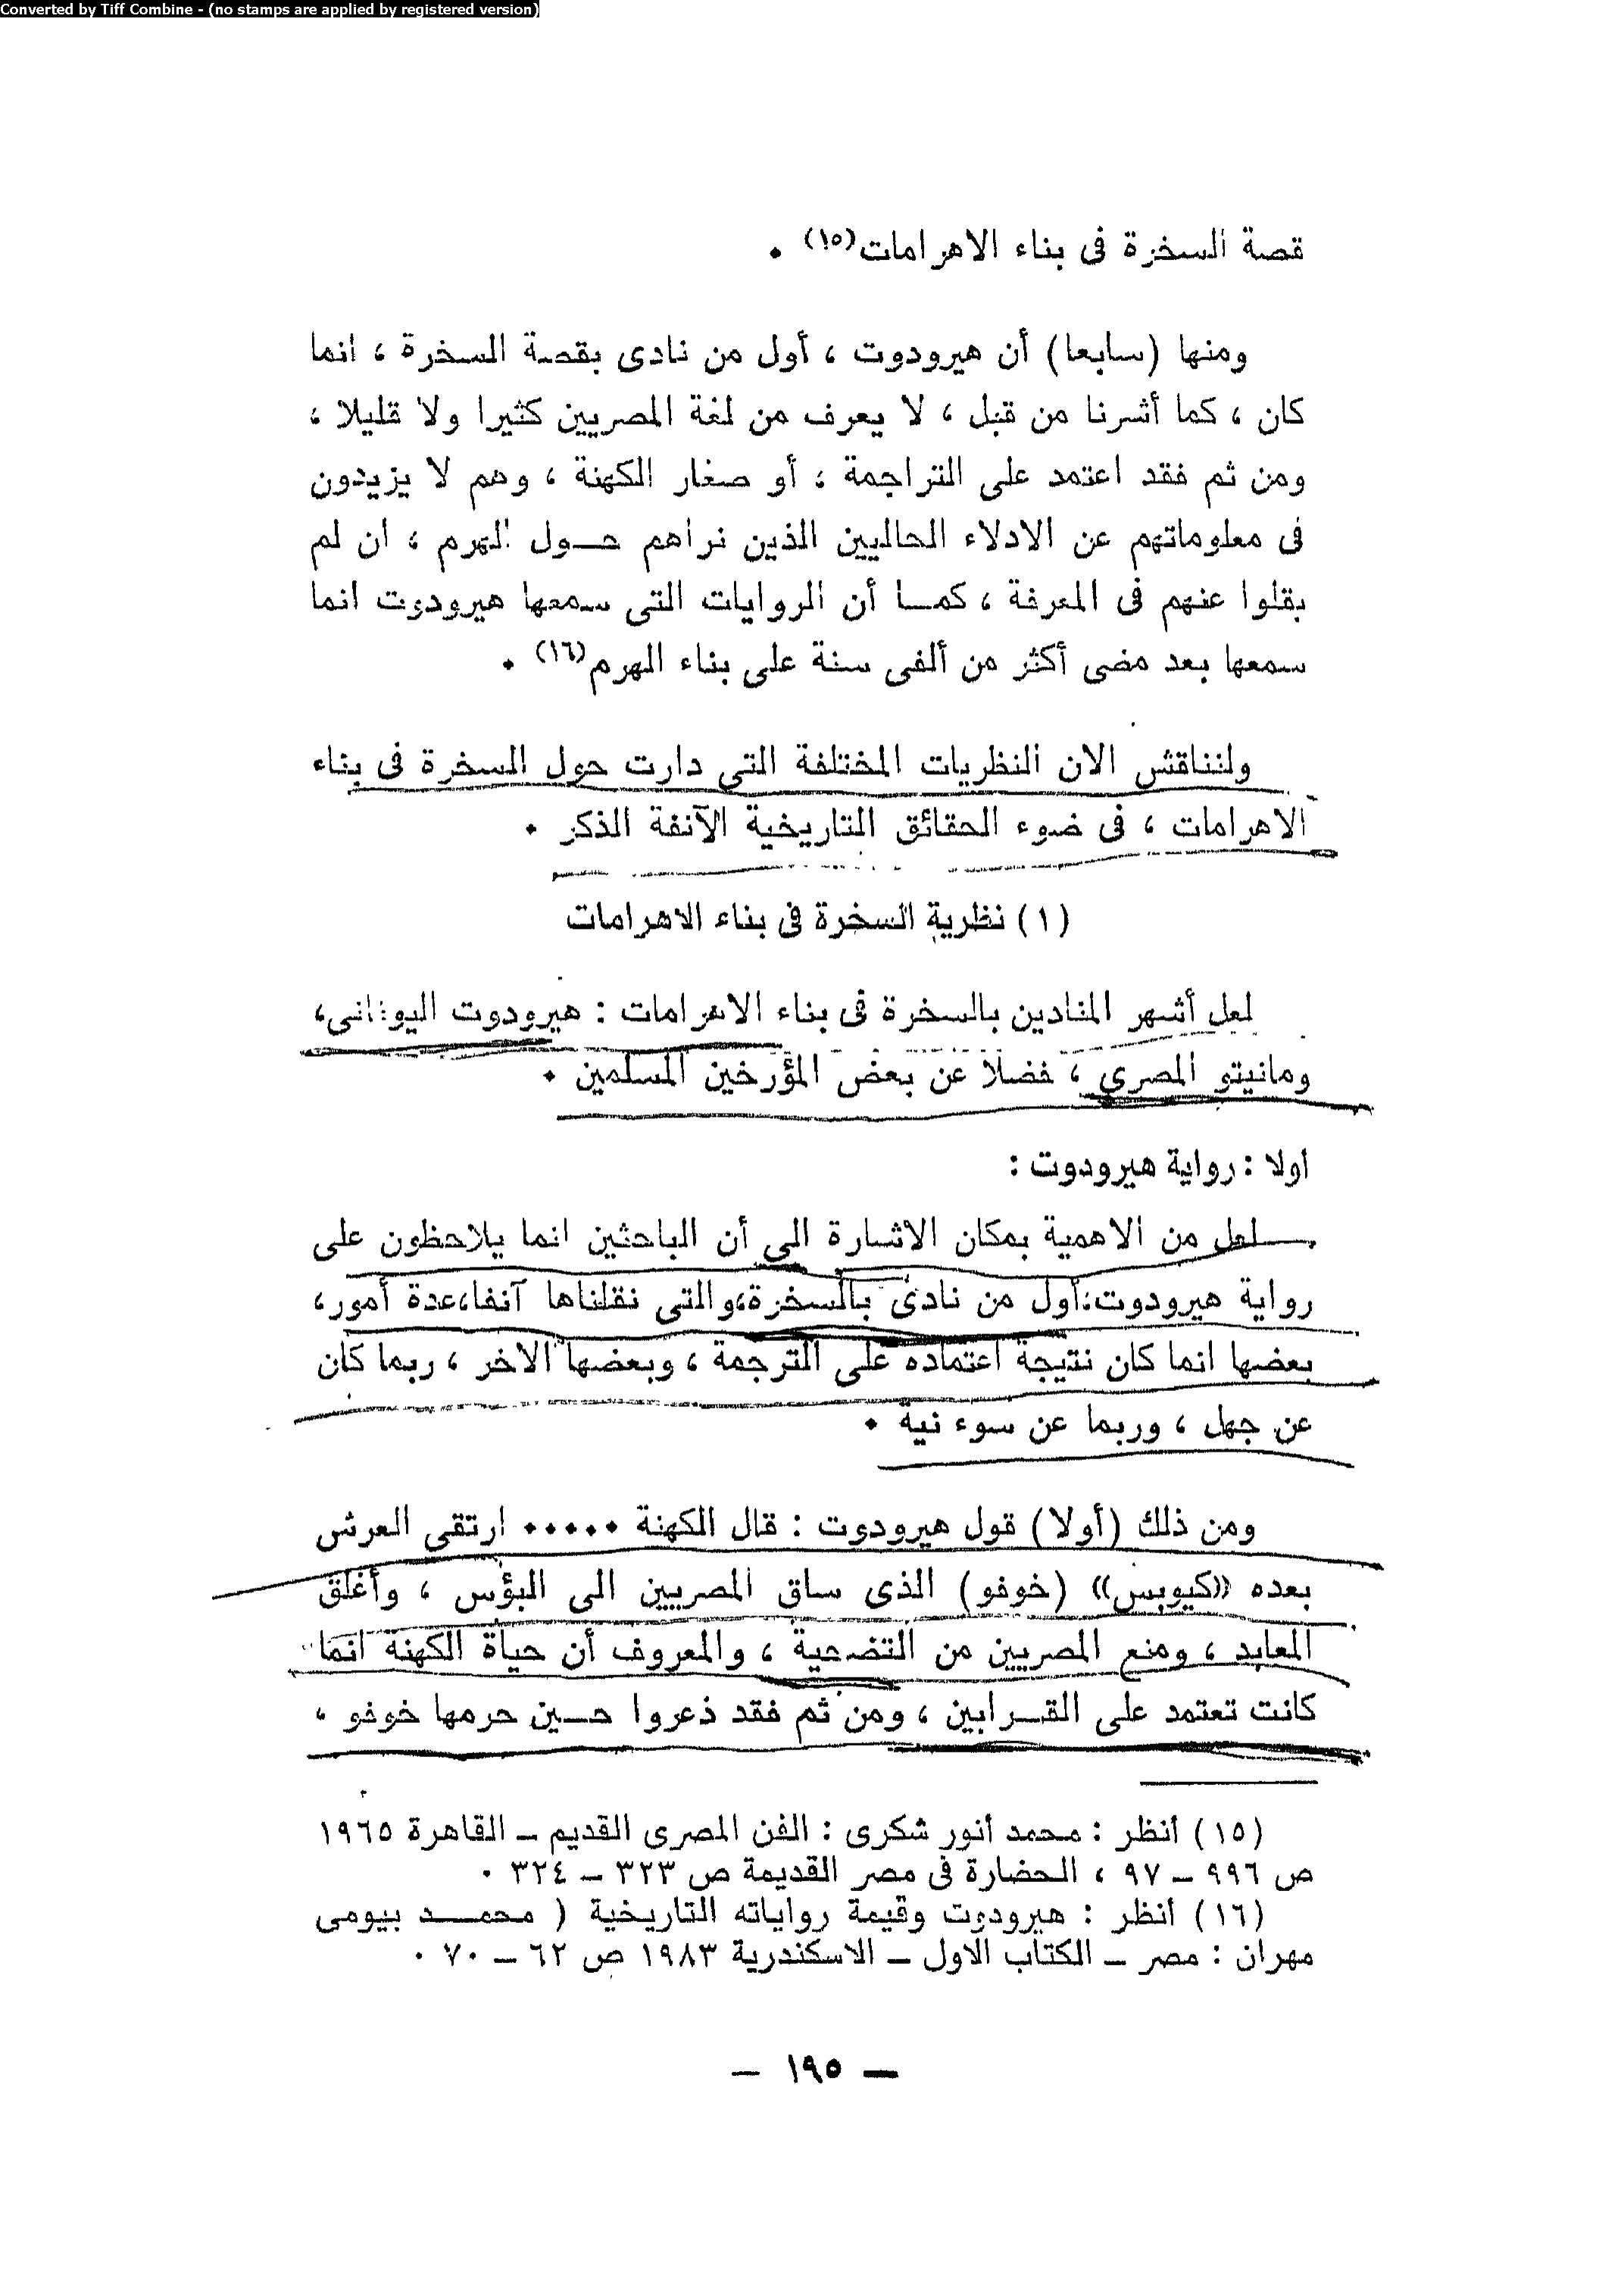 Converted by Tiff Combine - (no stamps are applied by registered version)
قصة السخرة فى بناء الاهرامات(١٥) ٠
ومنها (سابعا) أن هيرودوت ، أول من نادى بقصة السخرة ، انما
كان ، كما أشرنا من قبل ، لا يعرف من لغة المصريين كثيرا ولا قليلا ،
ومن ثم فقد اعتمد على التراجمة ، أو صغار الكهنة ، وهم لا يزيدون
فى معلوماتهم عن الادلاء الحاليين الذين نراهم حول الهرم ، ان لم
يقلوا عنهم فى المعرفة ، كما أن الروايات التى سمعها هيرودوت انما
سمعها بعد مضى أكثر من ألفى سنة على بناء الهرم(١٦) ٠
ولنناقش الان النظريات المختلفة التى دارت حول السخرة فى بناء
الاهرامات ، فى ضوء الحقائق التاريخية الآنفة الذكر ٠
(١) نظرية السخرة فى بناء الاهرامات
لعل أشهر المنادين بالسخرة فى بناء الاهرامات : هيرودوت اليونانى،
ومانيتو المصرى ، فضلا عن بعض المؤرخين المسلمين ٠
اولا : رواية هيرودوت :
لعل من الاهمية بمكان الاشارة الى أن الباحثين انما يلاحظون على
رواية هيرودوت،أول من نادى بالسخرة،والتى نقلناها آنفا،عدة أمور،
بعضها انما كان نتيجة اعتماده على الترجمة ، وبعضها الاخر ، ربما كان
عن جهل ، وربما عن سوء نية ٠
ومن ذلك (أولا) قول هيرودوت : قال الكهنة ٠٠٠٠٠ ارتقى العرش
بعده «كيوبس» (خوفو) الذى ساق المصريين الى البؤس ، وأغلق
المعابد ، ومنع المصريين من التضحية ، والمعروف أن حياة الكهنة انما
كانت تعتمد على القرابين ، ومن ثم فقد ذعروا حين حرمها خوفو ،
(١٥) أنظر : محمد أنور شكرى : الفن المصرى القديم – القاهرة ١٩٦٥
ص ٩٩٦ – ٩٧ ، الحضارة فى مصر القديمة ص ٣٢٣ – ٣٢٤ ٠
(١٦) أنظر : هيرودوت وقيمة رواياته التاريخية ( محمد بيومى
مهران : مصر – الكتاب الاول – الاسكندرية ١٩٨٣ ص ٦٢ – ٧٠ ٠
– ١٩٥ –